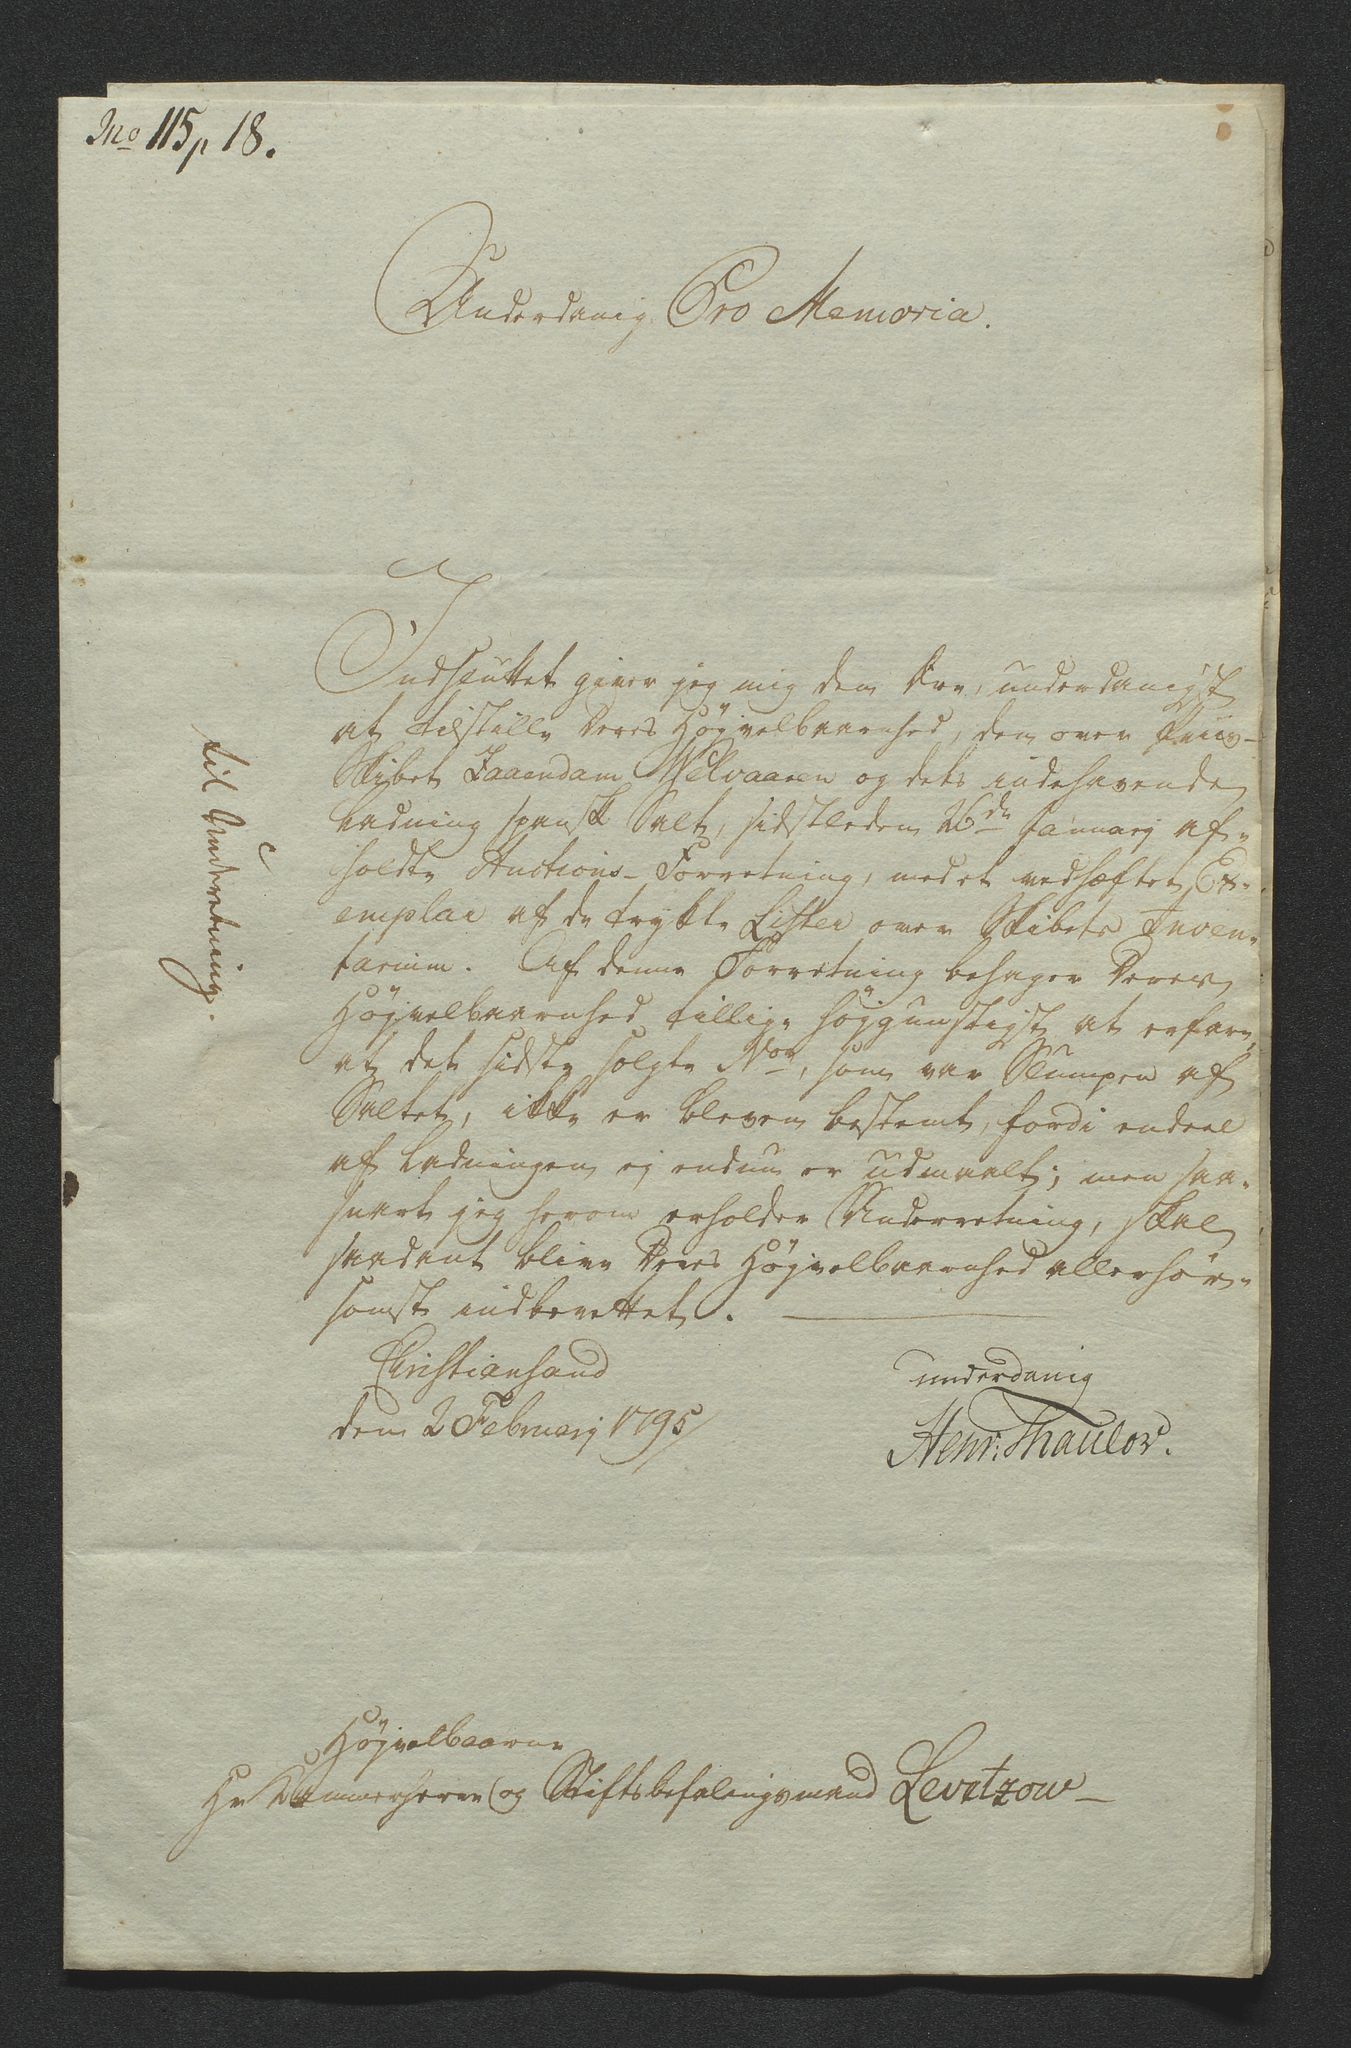 No 115 p 18.
Underdanig Pro Memoria.
Indsluttet giver jeg mig den Ære, underdanigst
at tilstille Deres Høyvelbaarenhed, den over Priis-
Skibet Zaaendam Welvaaren og dets indehavende
Ladning spansk Salt, sidstleden 26de Januarj af-
holdte Auctions-Forretning, med et vedhæftet Ex-
emplar af de trykte Lister over Skibets Inven-
tarium. Af denne Forretning behager Deres
Høyvelbaarenhed tillige høygunstigst at erfare,
at det sidste solgte No, som var Slumpen af
Saltet, ikke er bleven bestemt, fordi endeel
af Ladningen ej endnu er udmaalt; men saa-
snart jeg herom erholder Underretning, skal
saadant blive Deres Høyvelbaarenhed allerhør-
somst indberettet.
Christiansand
den 2 Februarj 1795
underdanig
Henr: Thaulow.
til Underretning.
Høyvelbaarne
Hr Kammerherre og Stiftsbefalingsmand Levetzow